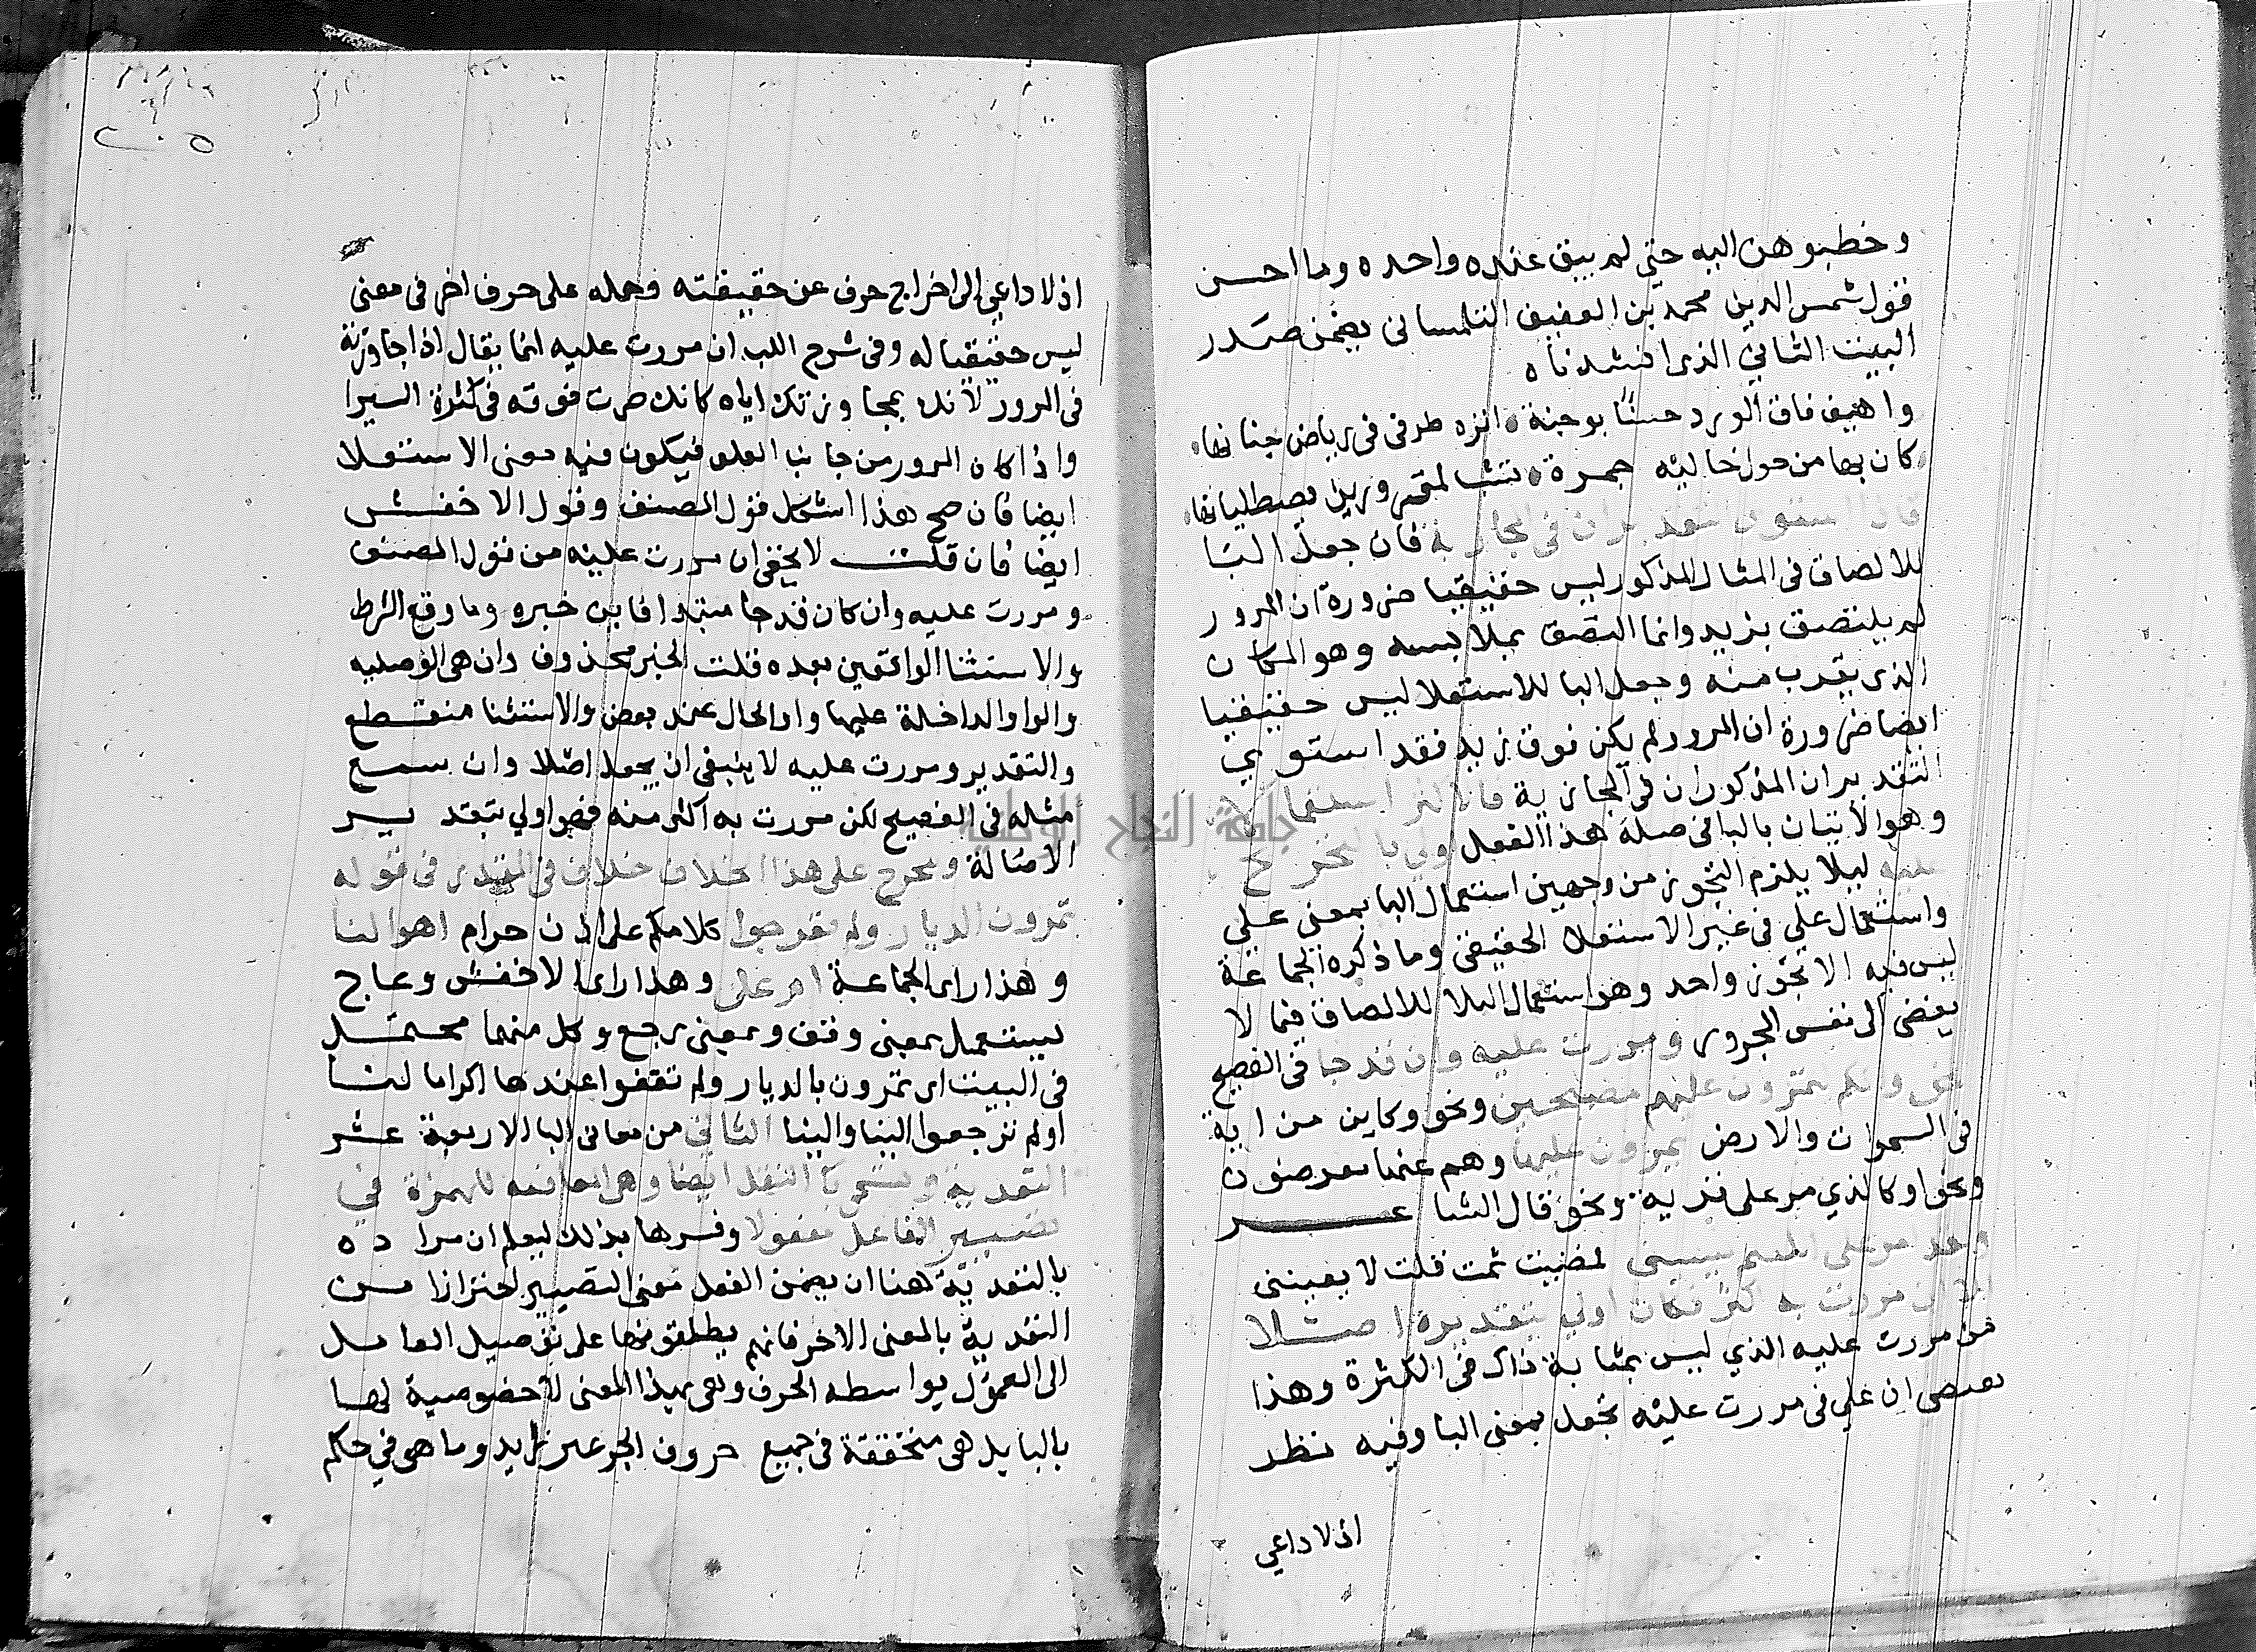 وخطبوهن اليه حتى لم يبق عنده واحده وما احسن
قول شمس الدين محمد بن العفيف التلمساني يضمن صدر
البيت الثاني الذي انشدناه
واهيف فاق الورد حسنا بوجنة انزه طرفي في رياض جنانها
كان بها من حول خاليه جمرة تشب لمقرورين يصطليانها
فاذا استوى التقديران في المجازية فان جعل البا
للالصاق في المثال المذكور ليس حقيقيا ضرورة ان المرور
لم يلتصق بزيد وانما التصق بملابسه وهو المكان
الذي يقرب منه وجعل البا للاستعلا ليس حقيقيا
ايضا ضرورة ان المرور لم يكن فوق زيد فقد استوي
التقديران المذكوران في المجازية فالاكثر استعمالا
وهو الاتيان بالبا في صلة هذا الفعل اولي بالتخريج
عليه ليلا يلزم التجوز من وجهين استعمال البا بمعنى علي
واستعمال علي في غير الاستعلا الحقيقي وما ذكره الجماعة
ليس فيه الا تجوز واحد وهو استعمال البلا للالصاق فيما لا
يفضي الى نفس المجرور ومررت عليه وان قد جا في الفصيح
نحو وانكم لتمرون عليهم مصبحين ونحو وكاين من اية
في السموات والارض يمرون عليها وهم عنها معرضون
ونحو او كالذي مر على قرية ونحو قال الشاعر
ولقد مر على اللئيم يسبني لمضيت ثمت قلت لا يعينني
الا ان مررت به اكثر فكان اولى بتقديره اصلا
من مررت عليه الذي ليس بمثابة ذاك في الكثرة وهذا
يقتضي ان علي في مررت عليه تجعل بمعنى البا وفيه نظر
اذ لا داعي
٢٠٥
اذ لا داعي الى اخراج حرف عن حقيقته وحمله على حرف اخر في معنى
ليس حقيقيا له وفي شرح اللب ان مررت عليه انما يقال اذا جاوزته
في المرور لانك بمجاوزتك اياه كانك صرت فوقه في كثرة السير
واذا كان المرور من جانب العلو فيكون فيه معنى الاستعلا
ايضا فان صح هذا اشكل قول المصنف وقول الاخفش
ايضا فان قلت لا يخفى ان مررت عليه من قول المصنف
ومررت عليه وان كان قد جا مبتدا فاين خبره وما وقع الشرط
والاستثنا الواقعين بعده قلت الخبر محذوف وان هي الوصليه
والواو الداخلة عليها واو الحال عند بعض والاستثنا منقطع
والتقدير ومررت عليه لا ينبغي ان يجعل اصلا وان سمع
مثله في الفصيح لكن مررت به اكثر منه فهو اولي بتقدير
الاصالة ويخرج على هذا الخلاف خلاف في المقدر في قوله
تمرون الديار ولم تعوجوا كلامكم علي اذن حرام اهو البا
وهذا راى الجماعة ام على وهذا راى الاخفش وعاج
يستعمل بمعنى وقف وبمعنى رجع وكل منهما محتمل
في البيت اى تمرون بالديار ولم تقفوا عندها اكراما لنا
او لم ترجعوا الينا والينا الثاني من معاني البا الاربعة عشر
التعدية وتسمى با النقل ايضا وهي المعاقبه للهمزة في
تصيير الفاعل مفعولا وفسرها بذلك ليعلم ان مراده
بالتعدية هنا ان يضمن الفعل معنى التصيير احترازا من
التعدية بالمعنى الاخر فانهم يطلقونها على توصيل العامل
الى المعمول بواسطه الحرف وهى بهذا المعنى لا خصوصية لها
بالبا بل هي متحققة في جميع حروف الجر غير الزايد وما هو في حكم